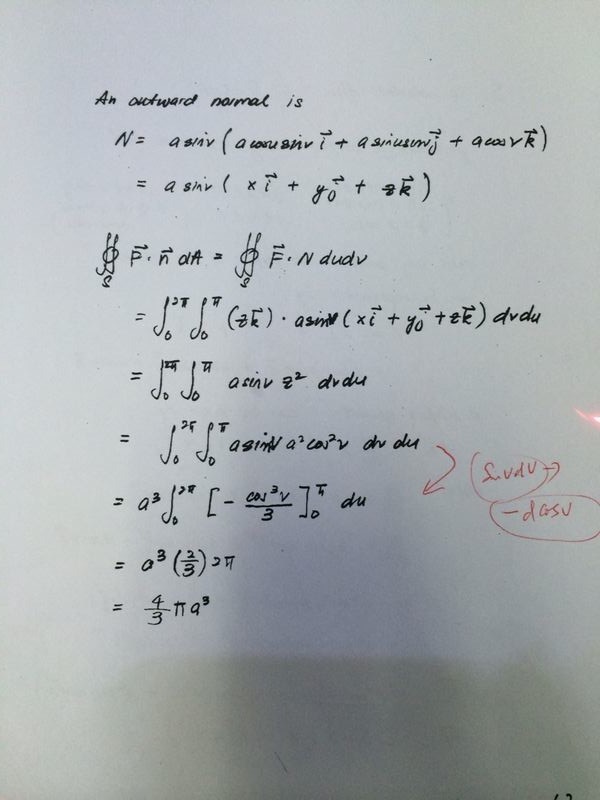 An outward normal is
N = a sinv ( a cosu sinv i⃗ + a sinu sinv j⃗ + a cosv k⃗ )
= a sinv ( x i⃗ + y j⃗ + z k⃗ )
∯_S F⃗ · n⃗ dA = ∯_S F⃗ · N du dv
= ∫_0^{2π} ∫_0^π (z k⃗) · a sinv ( x i⃗ + y j⃗ + z k⃗ ) dv du
= ∫_0^{2π} ∫_0^π a sinv z² dv du
= ∫_0^{2π} ∫_0^π a sinv a² cos² v dv du
sinv dv →
- d cosv
= a³ ∫_0^{2π} [ - cos³v / 3 ]_0^π du
= a³ (2/3) 2π
= 4/3 π a³